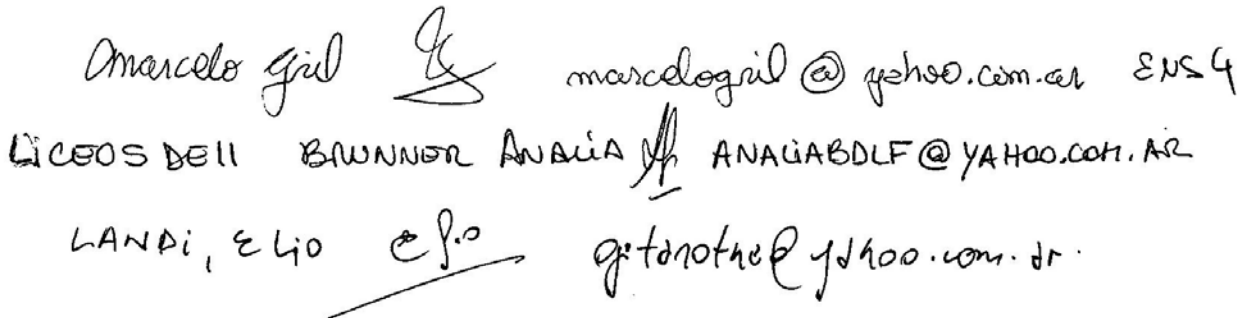 Marcelo Gril marcelogril@yahoo.com.ar ENS 4
LiCEOS DE11 BRUNNER ANALiA ANALiABDLF@YAHOO.COM.AR
LANDi, ELiO yahoo.com.ar.